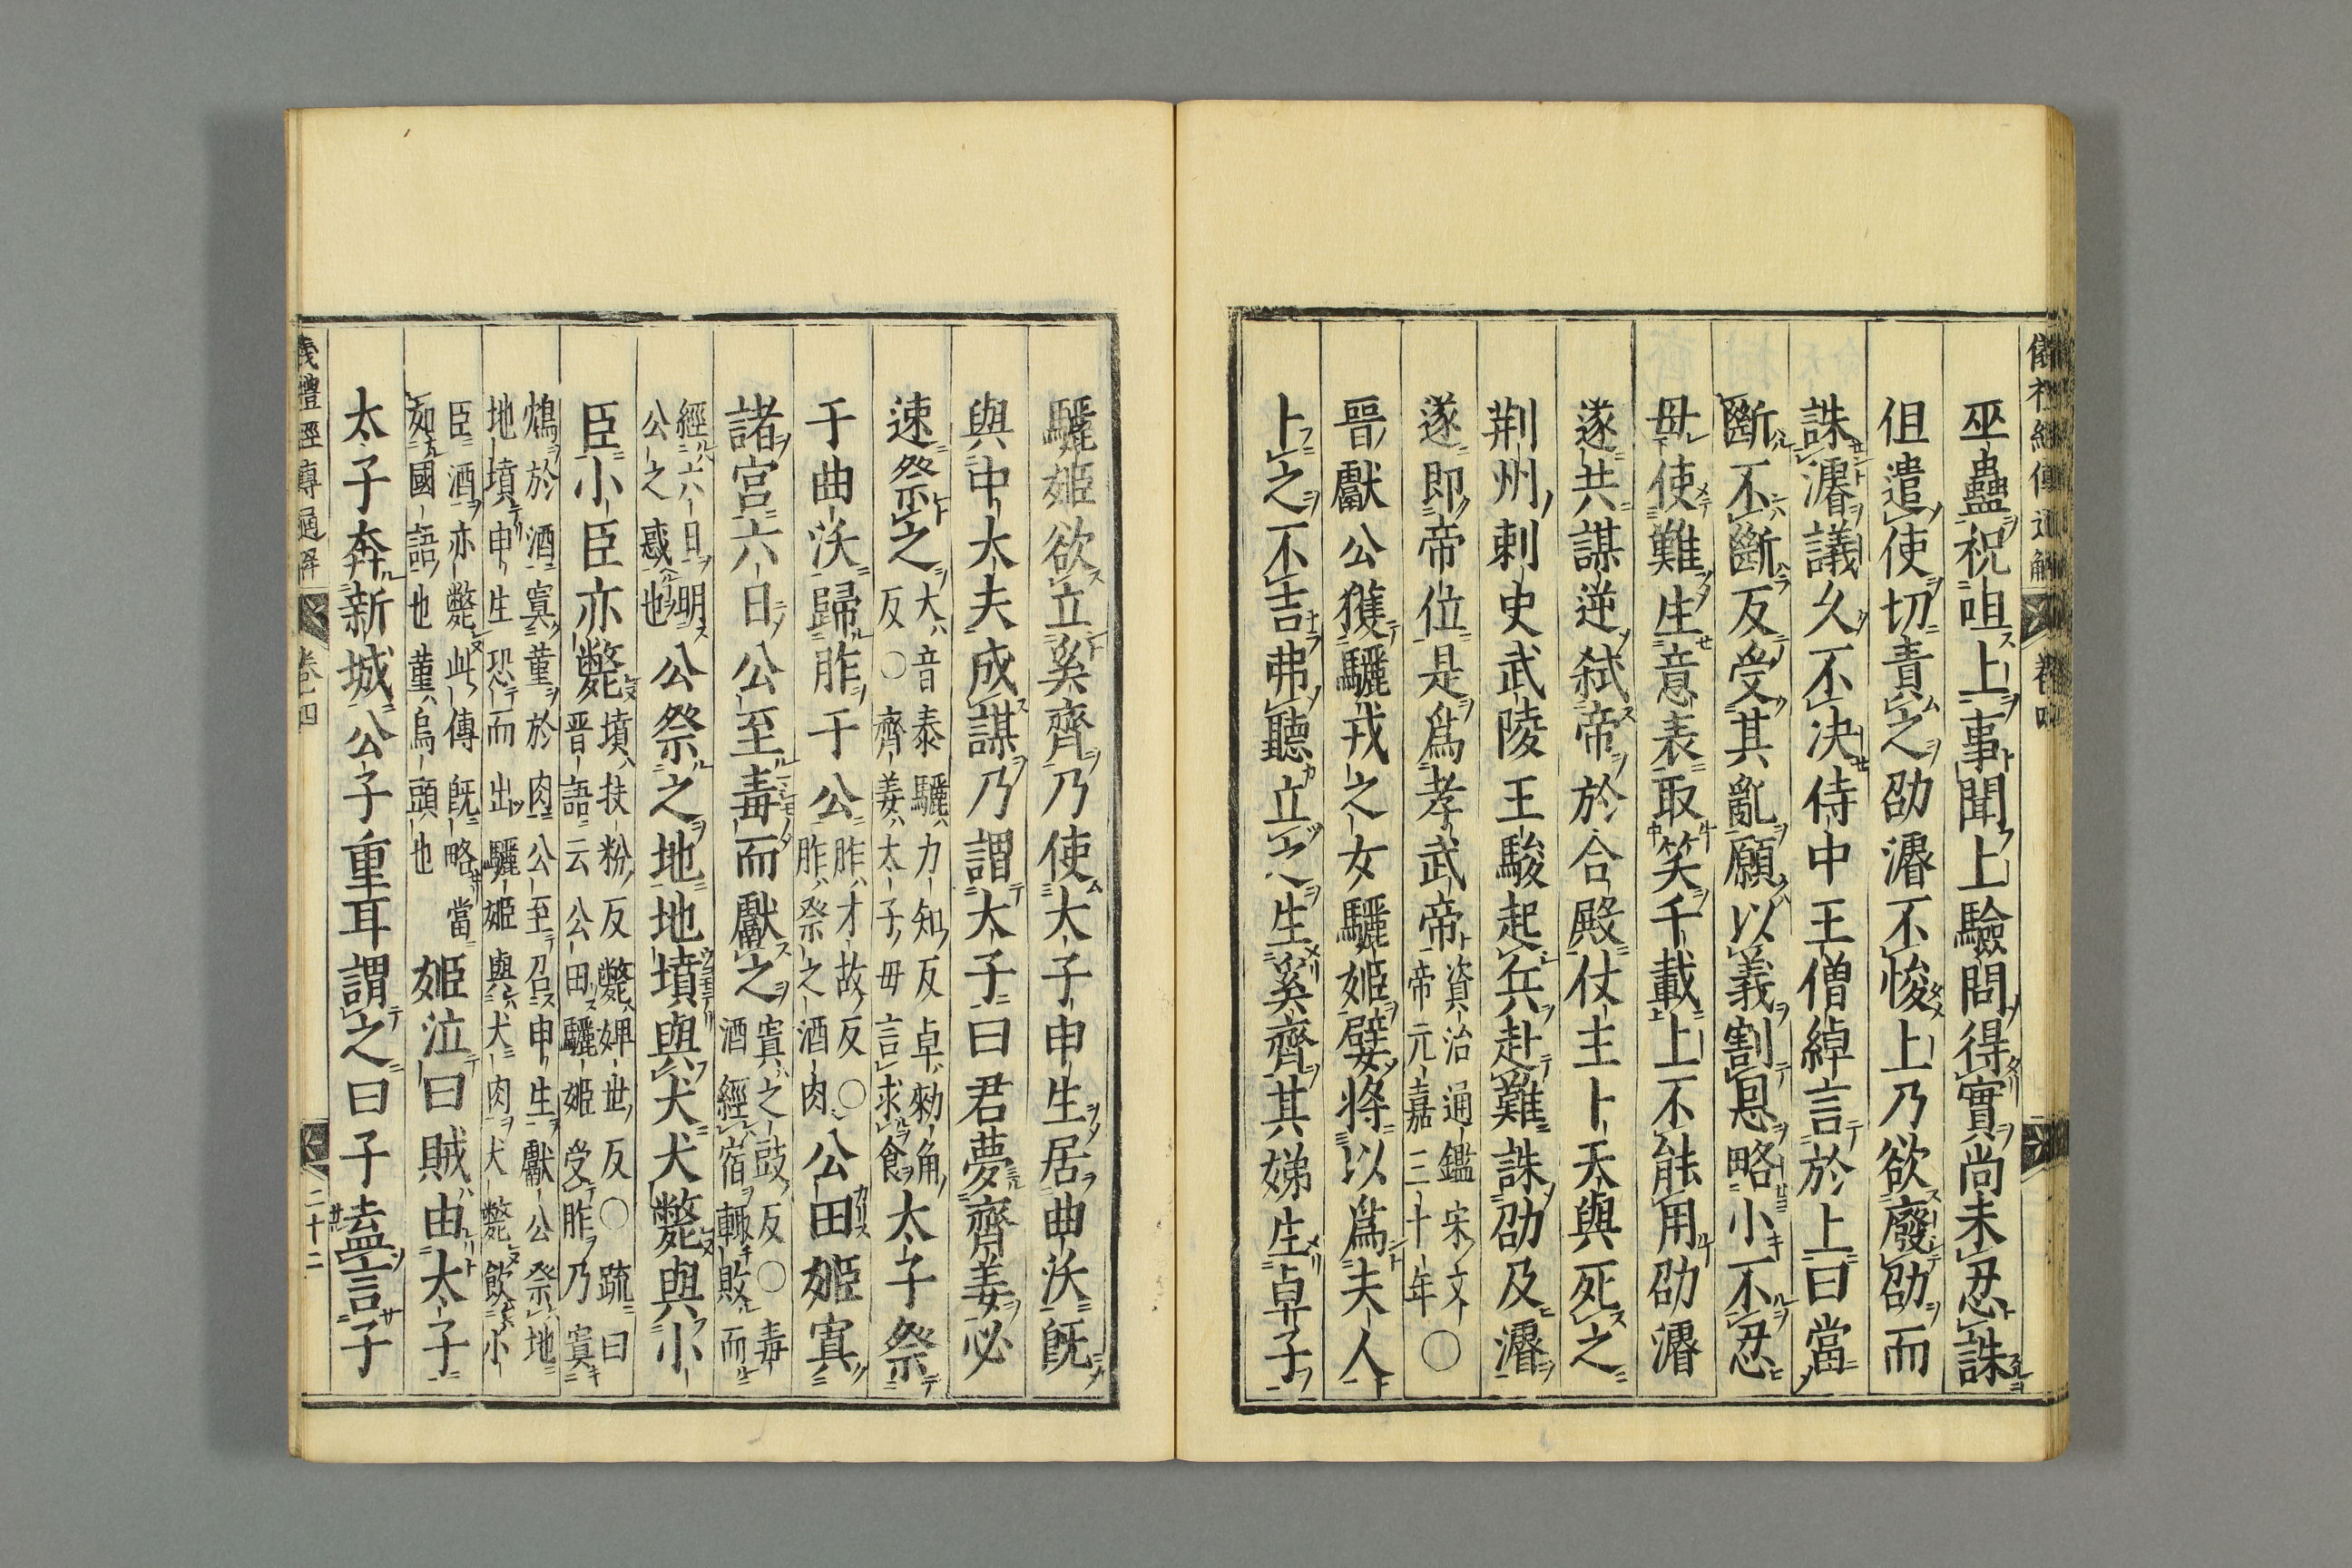 儀礼經傳通解 卷四
巫蠱祝咀上事聞上驗問得實尚未忍誅
但遣使切責之劭濬不悛上乃欲廢劭而
誅濬議久不决侍中王僧綽言於上曰當
斷不斷反受其亂願以義割恩略小不忍
毋使難生意表取笑千載上不能用劭濬
遂共謀逆弑帝於合殿仗主卜天與死之
荆州刺史武陵王駿起兵赴難誅劭及濬
遂即帝位是爲孝武帝資治通鑑宋文帝元嘉三十年〇
晉獻公獲驪戎之女驪姬嬖將以爲夫人
卜之不吉弗聽立之生奚齊其娣生卓子
驪姬欲立奚齊乃使大子申生居曲沃既
與中大夫成謀乃謂大子曰君夢齊姜必
速祭之大音泰驪力知反卓勑角反〇齊姜太子毋言求食太子祭
于曲沃歸胙于公胙才故反〇胙祭之酒肉公田姬寘
諸宮六日公至毒而獻之寘之豉反〇毒酒經宿輒敗而
經六日明公之惑也公祭之地地墳與犬犬斃與小
臣小臣亦斃墳扶粉反斃婢世反〇疏曰晋語云公田驪姬受胙乃寘
鴆於酒寘菫於肉公至召申生獻公祭地地墳申生恐而出驪姬與犬肉犬斃飲小
臣酒亦斃此傳既略當如國語也菫烏頭也姬泣曰賊由太子
太子奔新城公子重耳謂之曰子盍言子
義禮經傳通解 卷四 二十二